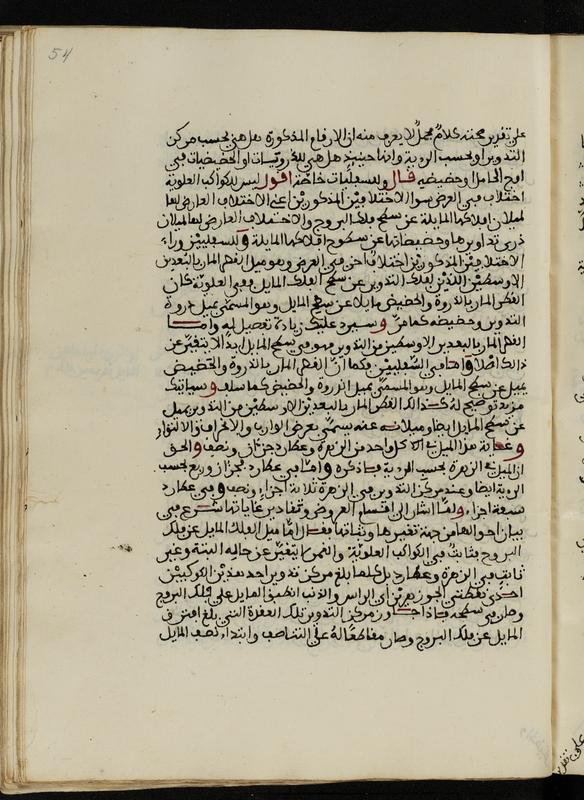 54
على تقرير محته كلام مجمل لا يعرف منه ان الارقام المذكورة هل هي بحسب مركز
التدوير او بحسب الروية وانها حينيذ هل هي للذرويات او الحضيضات في
اوج الحامل او حضيضه قال وللسفليات خاصة اقول ليس للكواكب العلوية
اختلاف في العرض سوا الاختلافين المذكورين اعني الاختلاف العارض لها
لميلان افلاكها المايلة عن سطح فلك البروج والاختلاف العارض لها لميلان
ذرى تداويرها وحضيضاتها عن سطوح افلاكها المايلة وللسفليين وراء
الاختلافين المذكورين اختلاف اخر في العرض وهو ميل القطر المار بالبعدين
الاوسطين اللذين لفلك التدوير عن سطح الفلك المايل ففي العلوية كان
القطر المار بالذروة والحضيض مايلا عن سطح المايل وهو المسمى بميل ذروة
التدوير وحضيضه كما مر وسيرد عليك زيادة تفصيل له واما
القطر المار بالبعدين الاوسطين من التدوير فهو في سطح المايل ابدا لا يتغير عن
ذلك اصلا واما في السفليين فكما ان القطر المار بالذروة والحضيض
يميل عن سطح المايل وهو المسمى بميل الذروة والحضيض كما سلف وسياتيك
مزيد توضيح له كذلك القطر المار بالبعدين الاوسطين من التدوير يميل
عن سطح المايل ايضا وميلانه عنه يسمى بعرض الوراب والانحراف والالتواء
وغاية هذا الميل في كل واحد من الزهرة وعطارد جزءان ونصف والحق
ان الميل في الزهرة بحسب الروية ما ذكره واما في عطارد فجزآن وربع بحسب
الروية ايضا وعند مركز التدوير في الزهرة ثلاثة اجزاء ونصف وفي عطارد
سبعة اجزاء ولما اشار الى اقسام العروض ومقادير غاياتها شرع في
بيان احوالها من جهة تغيرها وثباتها فقال اما ميل الفلك المايل عن فلك
البروج فثابت في الكواكب العلوية والقمر لا يتغير عن حاله البتة وغير
ثابت في الزهرة وعطارد بل كلما بلغ مركز تدوير احد هذين الكوكبين
احدى نقطتي الجوزهرين اى الراس والذنب انطبق المايل على فلك البروج
وصار في سطحه فاذا جاوز مركز التدوير تلك العقدة التي بلغ افترق
المايل عن فلك البروج وصار مقاطعا له على التناصف وابتداء نصف المايل